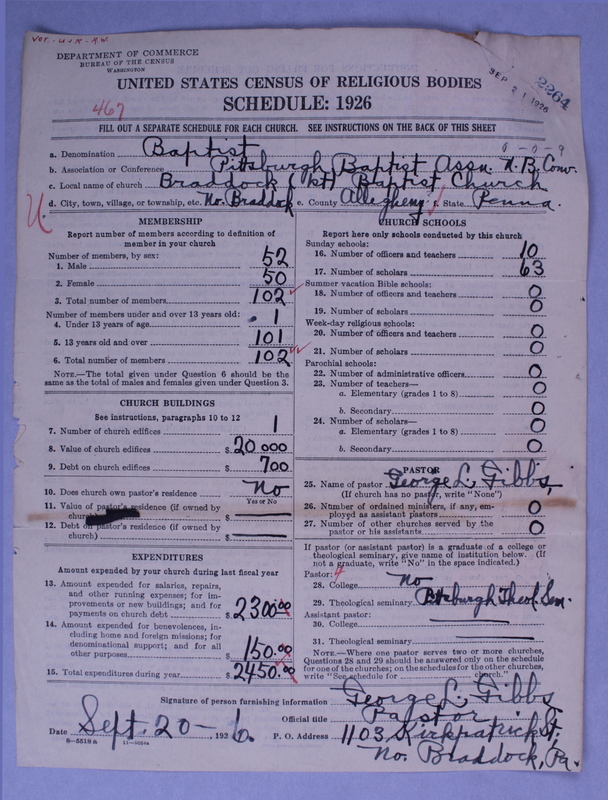 VER.-U+R-R.W.
DEPARTMENT OF COMMERCE
BUREAU OF THE CENSUS
WASHINGTON
SEP 21 1926
2264
UNITED STATES CENSUS OF RELIGIOUS BODIES
467
SCHEDULE: 1926
FILL OUT A SEPARATE SCHEDULE FOR EACH CHURCH. SEE INSTRUCTIONS ON THE BACK OF THIS SHEET
0-0-9
a. Denomination Baptist
b. Association or Conference Pittsburgh Baptist Assn. N. B. Conv.
c. Local name of church Braddock (1st) Baptist Church
d. City, town, village, or township, etc. No. Braddock e. County Allegheny f. State Penna.
U.
MEMBERSHIP
Report number of members according to definition of
member in your church
Number of members, by sex:
1. Male 52
2. Female 50
3. Total number of members 102
Number of members under and over 13 years old:
4. Under 13 years of age 1
5. 13 years old and over 101
6. Total number of members 102
NOTE.—The total given under Question 6 should be
the same as the total of males and females given under Question 3.
CHURCH BUILDINGS
See instructions, paragraphs 10 to 12
7. Number of church edifices 1
8. Value of church edifices $ 20 000
9. Debt on church edifices $ 700
10. Does church own pastor's residence No
Yes or No
11. Value of pastor's residence (if owned by
church) $
12. Debt on pastor's residence (if owned by
church) $
EXPENDITURES
Amount expended by your church during last fiscal year
13. Amount expended for salaries, repairs,
and other running expenses; for im-
provements or new buildings; and for
payments on church debt $ 2300.00
14. Amount expended for benevolences, in-
cluding home and foreign missions; for
denominational support; and for all
other purposes 150.00
15. Total expenditures during year $ 2450.00
CHURCH SCHOOLS
Report here only schools conducted by this church
Sunday schools:
16. Number of officers and teachers 10
17. Number of scholars 63
Summer vacation Bible schools:
18. Number of officers and teachers 0
19. Number of scholars 0
Week-day religious schools:
20. Number of officers and teachers 0
21. Number of scholars 0
Parochial schools:
22. Number of administrative officers 0
23. Number of teachers—
a. Elementary (grades 1 to 8) 0
b. Secondary 0
24. Number of scholars—
a. Elementary (grades 1 to 8) 0
b. Secondary 0
PASTOR
25. Name of pastor George L. Gibbs,
(If church has no pastor, write "None")
26. Number of ordained ministers, if any, em-
ployed as assistant pastors 0
27. Number of other churches served by the
pastor or his assistants 0
If pastor (or assistant pastor) is a graduate of a college or
theological seminary, give name of institution below. (If
not a graduate, write "No" in the space indicated.)
Pastor: 4
28. College no
29. Theological seminary Theol. Sem.
Assistant pastor:
30. College
31. Theological seminary
NOTE.—Where one pastor serves two or more churches,
Questions 28 and 29 should be answered only on the schedule
for one of the churches; on the schedules for the other churches,
write "See schedule for church."
Signature of person furnishing information George L. Gibbs
Official title Pastor
Date Sept. 20 -, 1926. P. O. Address 1103 Kirkpatrick St.
No. Braddock, Pa.
8—5518a